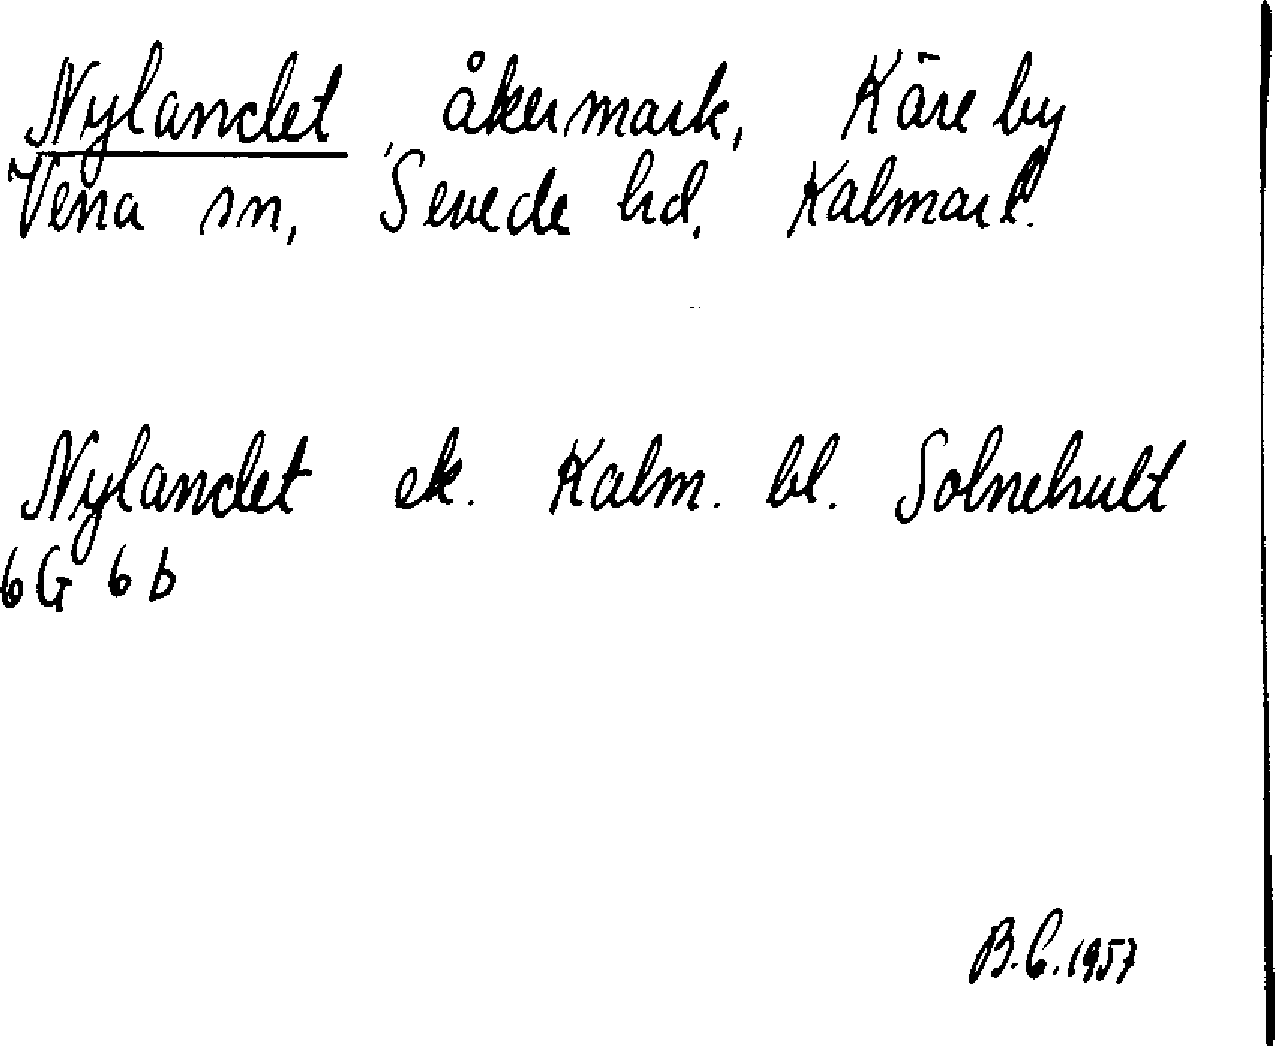 Nylandet, åkermark, Käre by
Vena sn, Sevede hd, Kalmar l.
Nylandet ek. Kalm. bl. Solnehult
6G 6b
B.C. 1957